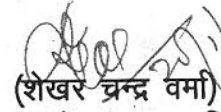 (शेखर चन्द्र वर्मा)